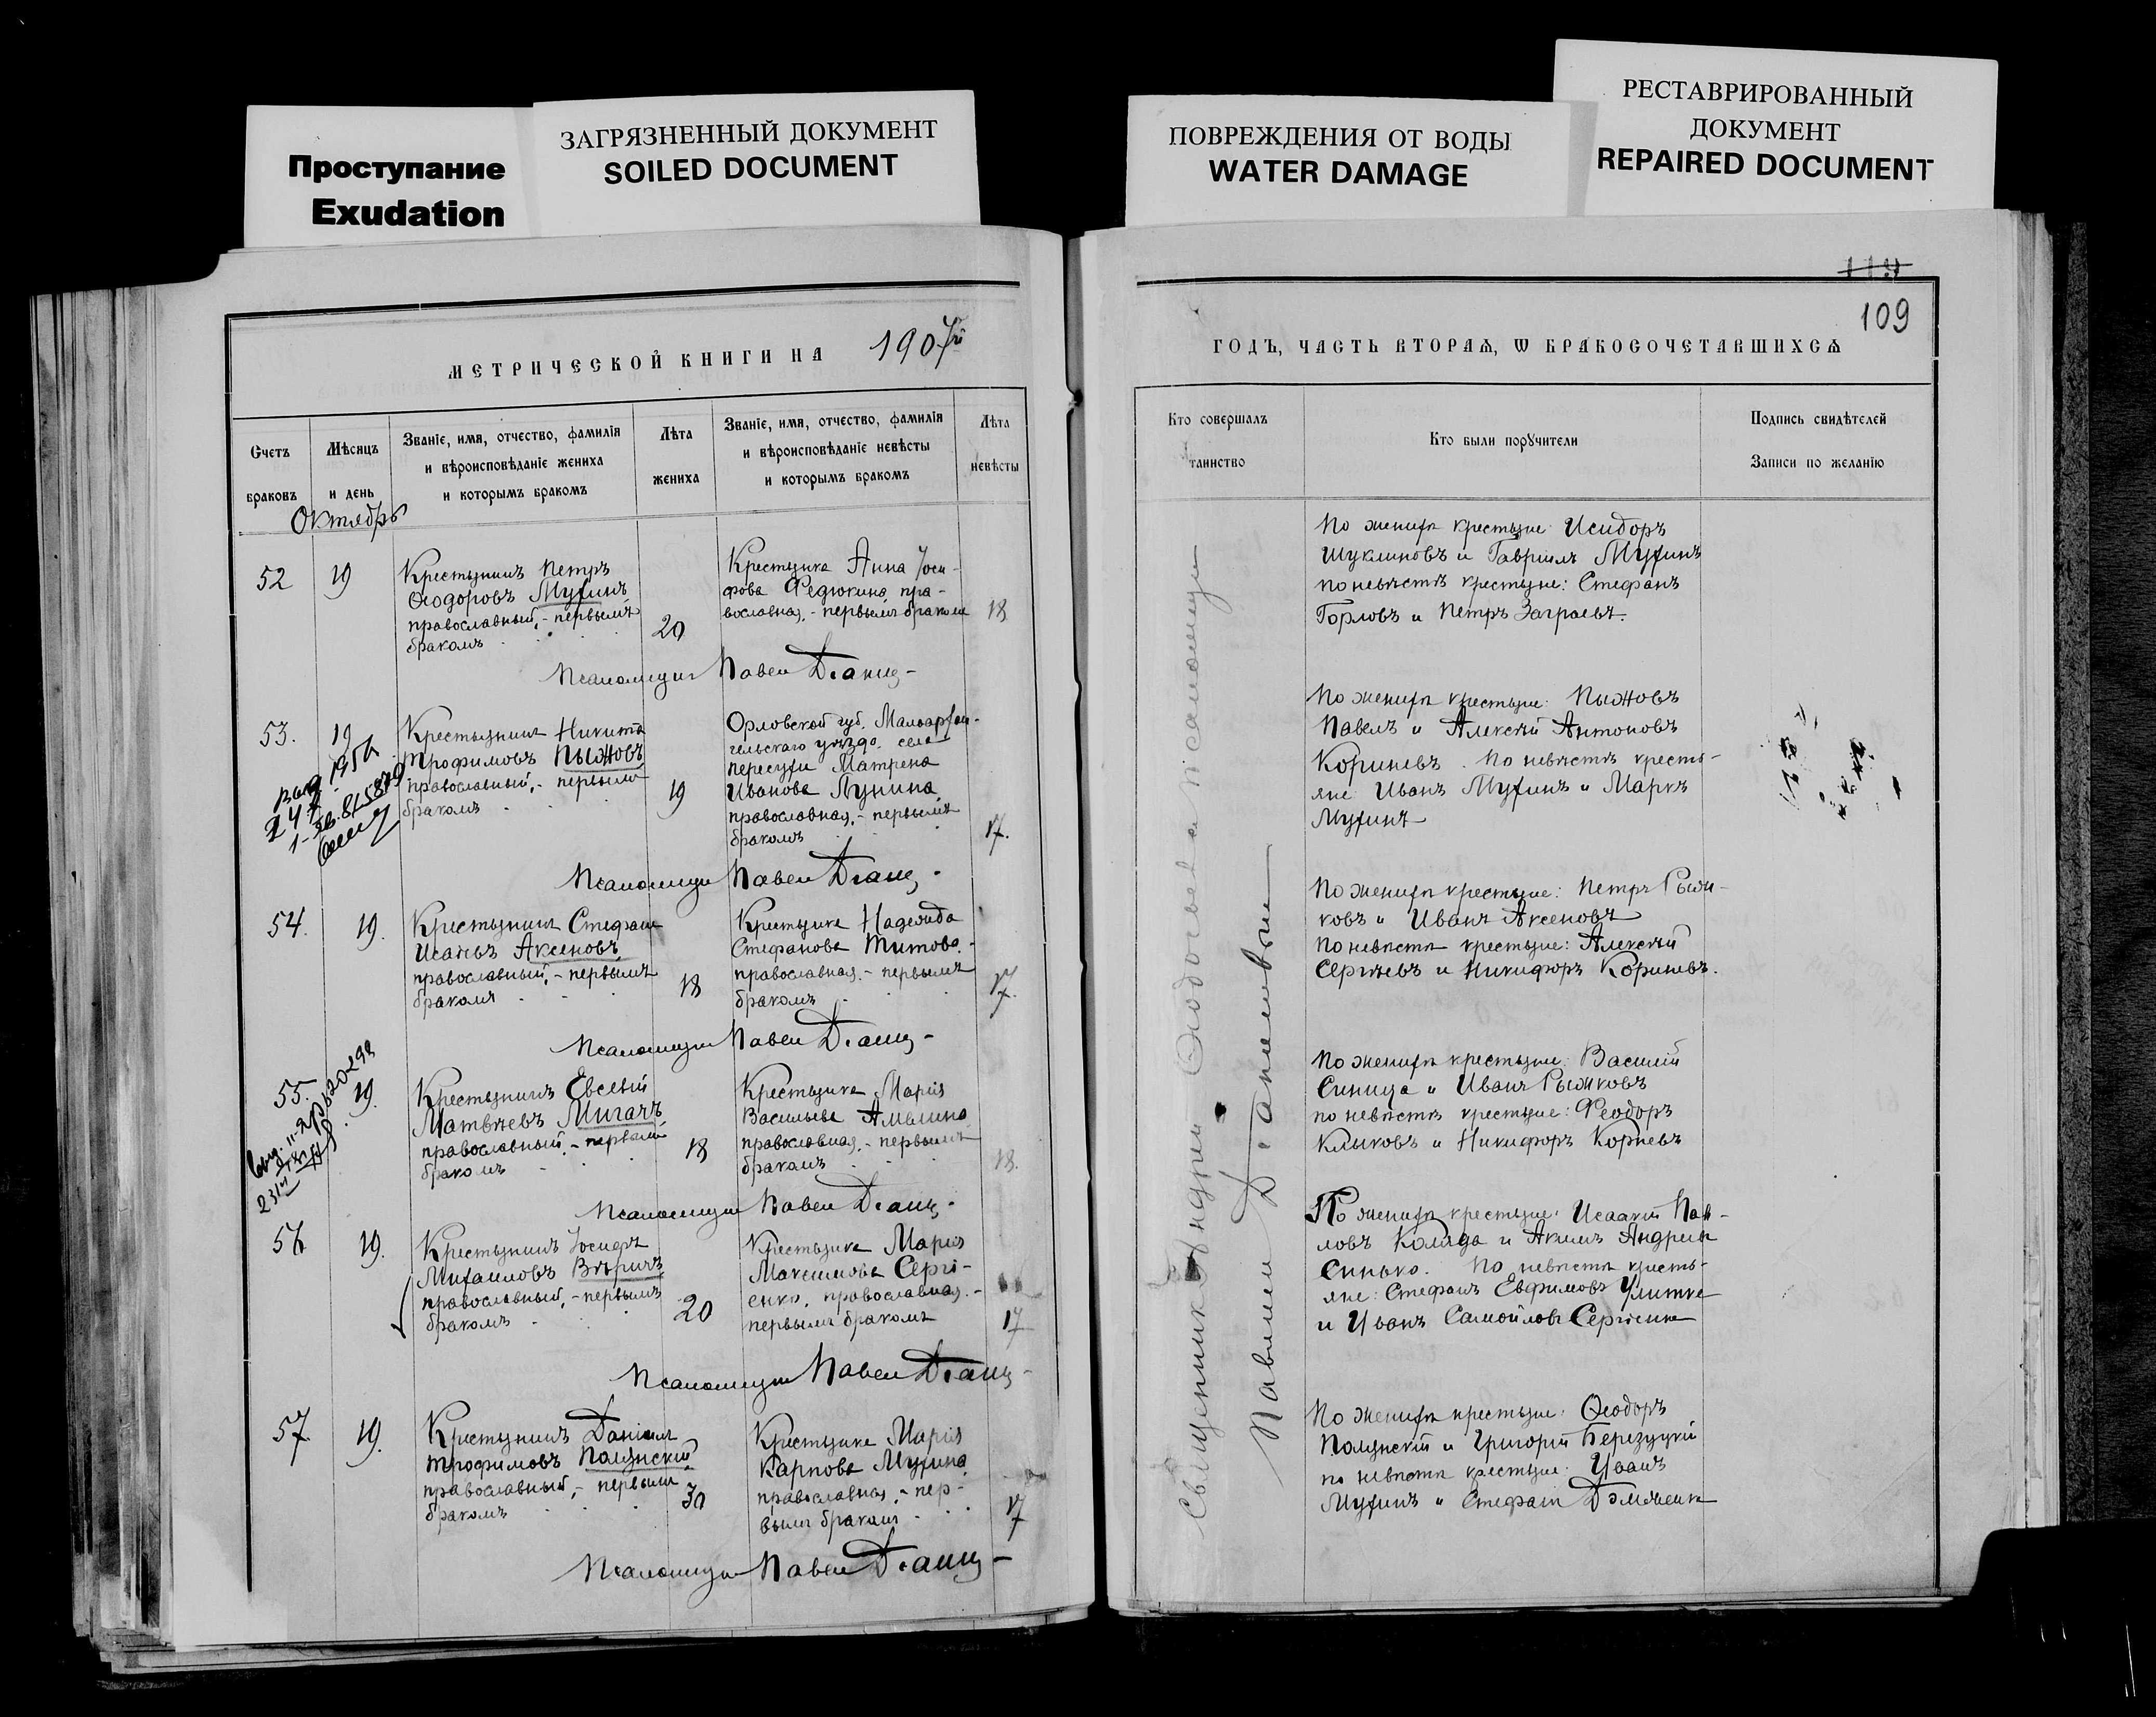 Проступание
Exudation
ЗАГРЯЗНЕННЫЙ ДОКУМЕНТ
SOILED DOCUMENT
ПОВРЕЖДЕНИЯ ОТ ВОДЫ
WATER DAMAGE
РЕСТАВРИРОВАННЫЙ
ДОКУМЕНТ
REPAIRED DOCUMENT
МЕТРИЧЕСКОЙ КНИГИ НА 1907й
Счетъ
браковъ
Мѣсяцъ
и день
Званіе, имя, отчество, фамилія
и вѣроисповѣданіе жениха
и которымъ бракомъ
Лѣта
жениха
Званіе, имя, отчество, фамилія
и вѣроисповѣданіе невѣсты
и которымъ бракомъ
Лѣта
невѣсты
Октябрь
52
19
Крестьянинъ Петръ
Ѳеодоровъ Мухинъ
православный, - первымъ
бракомъ
20
Крестьянка Анна Іоси-
фова Федюкина, пра-
вославная, - первымъ бракомъ
18
Псаломщикъ Павелъ
53.
19
Крестьянинъ Никита
Трофимовъ Пыжовъ
православный, - первымъ
бракомъ
19
Орловской губ. Малоархан-
гельскаго уѣзда, села
Матрена
Иванова Лунина
православная, - первымъ
бракомъ
17.
Псаломщикъ Павелъ
54.
19.
Крестьянинъ Стефанъ
Исаевъ Аксеновъ
православный, - первымъ
бракомъ
18
Крестьянка Надежда
Стефанова Титова -
православная, - первымъ
бракомъ
17.
Псаломщикъ Павелъ
55.
19.
Крестьянинъ Евсевій
Матвѣевъ Мигачъ
православный, - первымъ
бракомъ
18
Крестьянка Марія
Васильева
православная, - первымъ
бракомъ
18.
Псаломщикъ Павелъ
56
19.
Крестьянинъ Іосифъ
Михаиловъ
православный, - первымъ
бракомъ
20
Крестьянка Марія
Максимова Сергі-
енко, православная, -
первымъ бракомъ
17
Псаломщикъ Павелъ
57
19.
Крестьянинъ Даніилъ
Трофимовъ Полунскій
православный, - первымъ
бракомъ
30
Крестьянка Марія
Карпова Мухина
православная, - пер-
вымъ бракомъ
17
Псаломщикъ Павелъ
119
109
ГОДЪ, ЧАСТЬ ВТОРАЯ, Ѡ БРАКОСОЧЕТАВШИХСЯ
Кто совершалъ
таинство
Кто были поручители
Подпись свидѣтелей
Записи по желанію
Священникъ Андрей
Павломъ
По женихѣ крестьяне: Исидоръ
Шуклиновъ и Гавріилъ Мухинъ
по невѣстѣ крестьяне: Стефанъ
Горловъ и Петръ Заграевъ.
По женихѣ крестьяне: Пыжовъ
Павелъ и Алексѣй Антоновъ
Кориневъ. По невѣстѣ кресть-
яне Иванъ Мухинъ и Маркъ
Мухинъ
По женихѣ крестьяне: Петръ Рыж-
ковъ и Иванъ Аксеновъ
по невѣстѣ крестьяне: Алексѣй
Сергѣевъ и Никифоръ Кориневъ.
По женихѣ крестьяне: Василій
Синица и Иванъ Рыжковъ
по невѣстѣ крестьяне: Ѳеодоръ
Клыковъ и Никифоръ Корневъ
По женихѣ крестьяне: Исаакій Пав-
ловъ Коляда и Акимъ Андреевъ
Синько. По невѣстѣ кресть-
яне: Стефанъ Евфимовъ Улитка
и Иванъ Самойловъ Сергіенко
По женихѣ крестьяне: Ѳеодоръ
Полунскій и Григорій Березуцкій
по невѣстѣ крестьяне: Иванъ
Мухинъ и Стефанъ